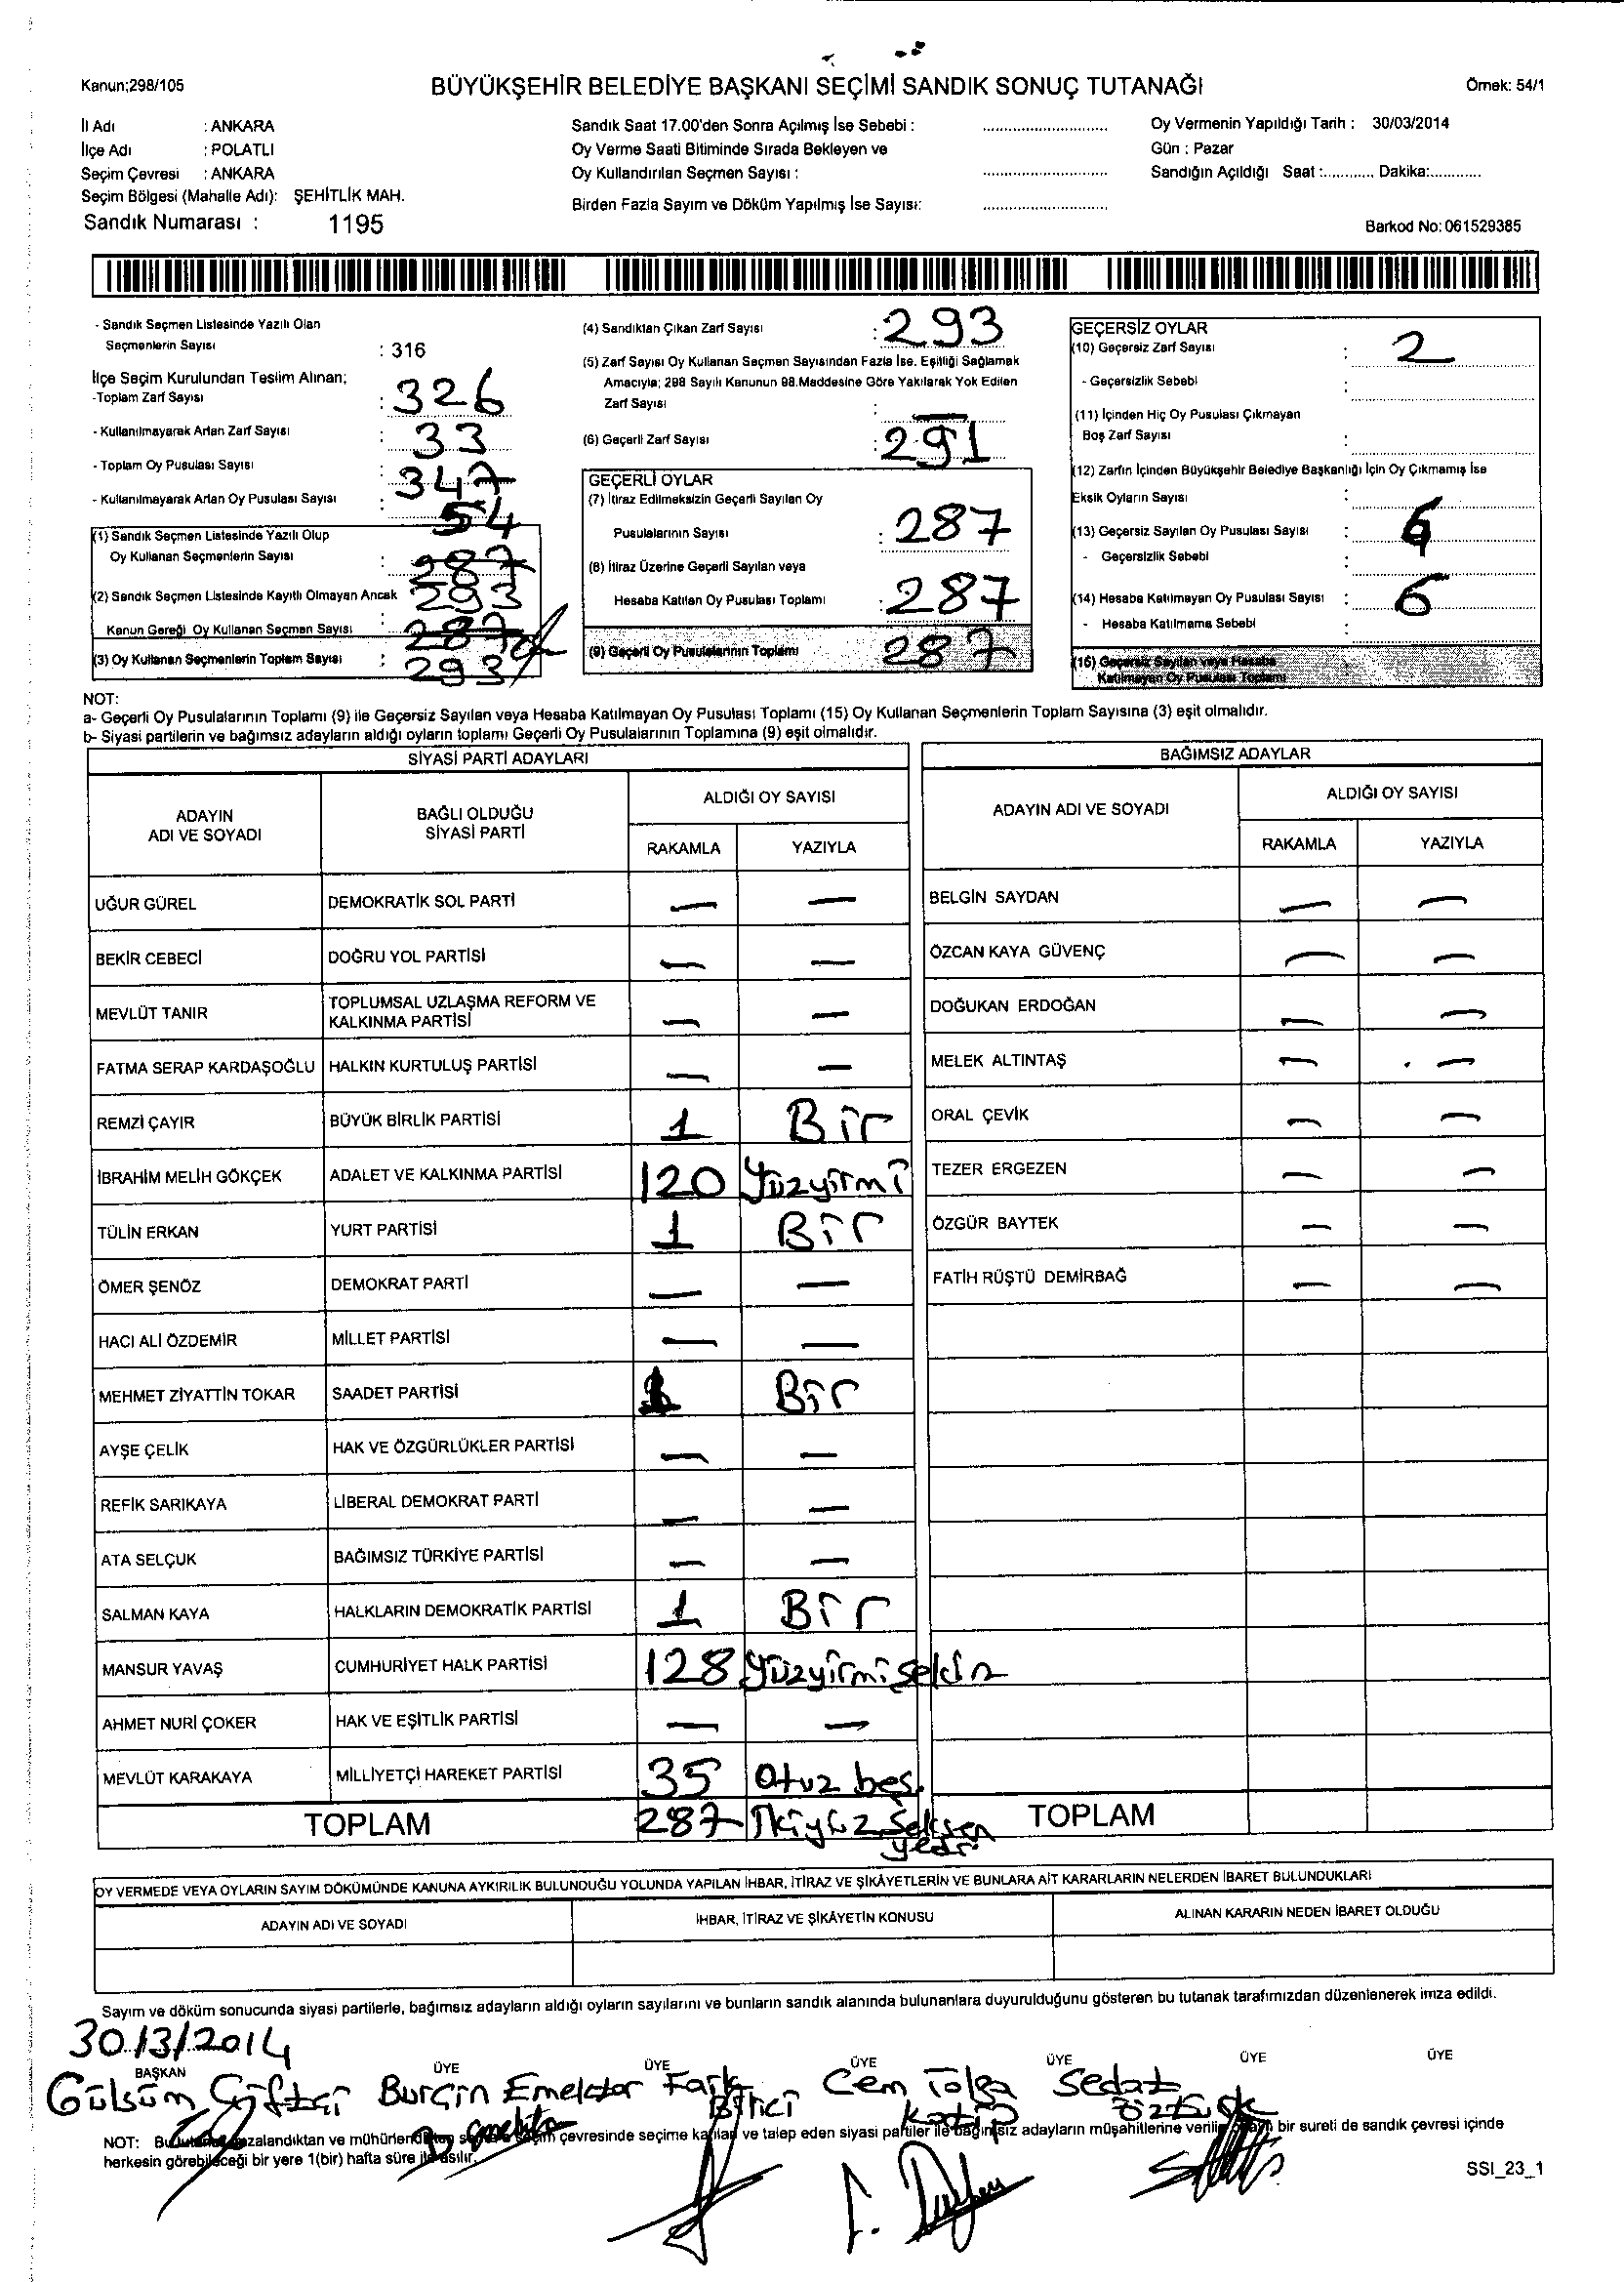 Kanun;298/105
BÜYÜKŞEHİR BELEDİYE BAŞKANI SEÇİMİ SANDIK SONUÇ TUTANAĞI
Örnek: 54/1
İl Adı : ANKARA
İlçe Adı : POLATLI
Seçim Çevresi : ANKARA
Seçim Bölgesi (Mahalle Adı): ŞEHİTLİK MAH.
Sandık Numarası : 1195
Sandık Saat 17.00'den Sonra Açılmış İse Sebebi :
Oy Verme Saati Bitiminde Sırada Bekleyen ve
Oy Kullandırılan Seçmen Sayısı :
Birden Fazla Sayım ve Döküm Yapılmış İse Sayısı:
Oy Vermenin Yapıldığı Tarih : 30/03/2014
Gün : Pazar
Sandığın Açıldığı Saat :............ Dakika:............
Barkod No: 061529385
- Sandık Seçmen Listesinde Yazılı Olan
Seçmenlerin Sayısı : 316
İlçe Seçim Kurulundan Teslim Alınan;
-Toplam Zarf Sayısı : 326
- Kullanılmayarak Artan Zarf Sayısı : 33
- Toplam Oy Pusulası Sayısı : 347
- Kullanılmayarak Artan Oy Pusulası Sayısı : 54
(1) Sandık Seçmen Listesinde Yazılı Olup
Oy Kullanan Seçmenlerin Sayısı : 287
293
(2) Sandık Seçmen Listesinde Kayıtlı Olmayan Ancak
Kanun Gereği Oy Kullanan Seçmen Sayısı :
287
(3) Oy Kullanan Seçmenlerin Toplam Sayısı : 293
(4) Sandıktan Çıkan Zarf Sayısı : 293
(5) Zarf Sayısı Oy Kullanan Seçmen Sayısından Fazla İse. Eşitliği Sağlamak
Amacıyla; 298 Sayılı Kanunun 98.Maddesine Göre Yakılarak Yok Edilen
Zarf Sayısı : —
(6) Geçerli Zarf Sayısı : 291
GEÇERLİ OYLAR
(7) İtiraz Edilmeksizin Geçerli Sayılan Oy
Pusulalarının Sayısı : 287
(8) İtiraz Üzerine Geçerli Sayılan veya
Hesaba Katılan Oy Pusulası Toplamı : 287
(9) Geçerli Oy Pusulalarının Toplamı 287
GEÇERSİZ OYLAR
(10) Geçersiz Zarf Sayısı : 2
- Geçersizlik Sebebi :
(11) İçinden Hiç Oy Pusulası Çıkmayan
Boş Zarf Sayısı :
(12) Zarfın İçinden Büyükşehir Belediye Başkanlığı İçin Oy Çıkmamış İse
Eksik Oyların Sayısı :
(13) Geçersiz Sayılan Oy Pusulası Sayısı :
- Geçersizlik Sebebi :
(14) Hesaba Katılmayan Oy Pusulası Sayısı : 6
- Hesaba Katılmama Sebebi :
(15) Geçersiz Sayılan veya Hesaba
Katılmayan Oy Pusulası Toplamı
NOT:
a- Geçerli Oy Pusulalarının Toplamı (9) ile Geçersiz Sayılan veya Hesaba Katılmayan Oy Pusulası Toplamı (15) Oy Kullanan Seçmenlerin Toplam Sayısına (3) eşit olmalıdır.
b- Siyasi partilerin ve bağımsız adayların aldığı oyların toplamı Geçerli Oy Pusulalarının Toplamına (9) eşit olmalıdır.
SİYASİ PARTİ ADAYLARI
ADAYIN ADI VE SOYADI
BAĞLI OLDUĞU SİYASİ PARTİ
ALDIĞI OY SAYISI
RAKAMLA YAZIYLA
UĞUR GÜREL DEMOKRATİK SOL PARTİ — —
BEKİR CEBECİ DOĞRU YOL PARTİSİ — —
MEVLÜT TANIR TOPLUMSAL UZLAŞMA REFORM VE KALKINMA PARTİSİ — —
FATMA SERAP KARDAŞOĞLU HALKIN KURTULUŞ PARTİSİ — —
REMZİ ÇAYIR BÜYÜK BİRLİK PARTİSİ 1 Bir
İBRAHİM MELİH GÖKÇEK ADALET VE KALKINMA PARTİSİ 120 Yüzyirmi
TÜLİN ERKAN YURT PARTİSİ 1 Bir
ÖMER ŞENÖZ DEMOKRAT PARTİ — —
HACI ALİ ÖZDEMİR MİLLET PARTİSİ — —
MEHMET ZİYATTİN TOKAR SAADET PARTİSİ 1 Bir
AYŞE ÇELİK HAK VE ÖZGÜRLÜKLER PARTİSİ — —
REFİK SARIKAYA LİBERAL DEMOKRAT PARTİ — —
ATA SELÇUK BAĞIMSIZ TÜRKİYE PARTİSİ — —
SALMAN KAYA HALKLARIN DEMOKRATİK PARTİSİ 1 Bir
MANSUR YAVAŞ CUMHURİYET HALK PARTİSİ 128 Yüzyirmi sekiz
AHMET NURİ ÇOKER HAK VE EŞİTLİK PARTİSİ — —
MEVLÜT KARAKAYA MİLLİYETÇİ HAREKET PARTİSİ 35 Otuz beş.
TOPLAM 287 İkiyüz Seksen yedi
BAĞIMSIZ ADAYLAR
ADAYIN ADI VE SOYADI
ALDIĞI OY SAYISI
RAKAMLA YAZIYLA
BELGİN SAYDAN — —
ÖZCAN KAYA GÜVENÇ — —
DOĞUKAN ERDOĞAN — —
MELEK ALTINTAŞ — —
ORAL ÇEVİK — —
TEZER ERGEZEN — —
ÖZGÜR BAYTEK — —
FATİH RÜŞTÜ DEMİRBAĞ — —
TOPLAM
OY VERMEDE VEYA OYLARIN SAYIM DÖKÜMÜNDE KANUNA AYKIRILIK BULUNDUĞU YOLUNDA YAPILAN İHBAR, İTİRAZ VE ŞİKÂYETLERİN VE BUNLARA AİT KARARLARIN NELERDEN İBARET BULUNDUKLARI
ADAYIN ADI VE SOYADI İHBAR, İTİRAZ VE ŞİKÂYETİN KONUSU ALINAN KARARIN NEDEN İBARET OLDUĞU
Sayım ve döküm sonucunda siyasi partilerle, bağımsız adayların aldığı oyların sayılarını ve bunların sandık alanında bulunanlara duyurulduğunu gösteren bu tutanak tarafımızdan düzenlenerek imza edildi.
30/3/2014
BAŞKAN ÜYE ÜYE ÜYE ÜYE ÜYE ÜYE
Gülsüm Çiftçi Burçin Emektar Faik Cem Tolga Sedat
Öztürk
NOT: Bu tutanak imzalandıktan ve mühürlendikten sonra seçim çevresinde seçime katılan ve talep eden siyasi partiler ile bağımsız adayların müşahitlerine verilir bir sureti de sandık çevresi içinde
herkesin görebileceği bir yere 1(bir) hafta süre ile asılır.
SSI_23_1